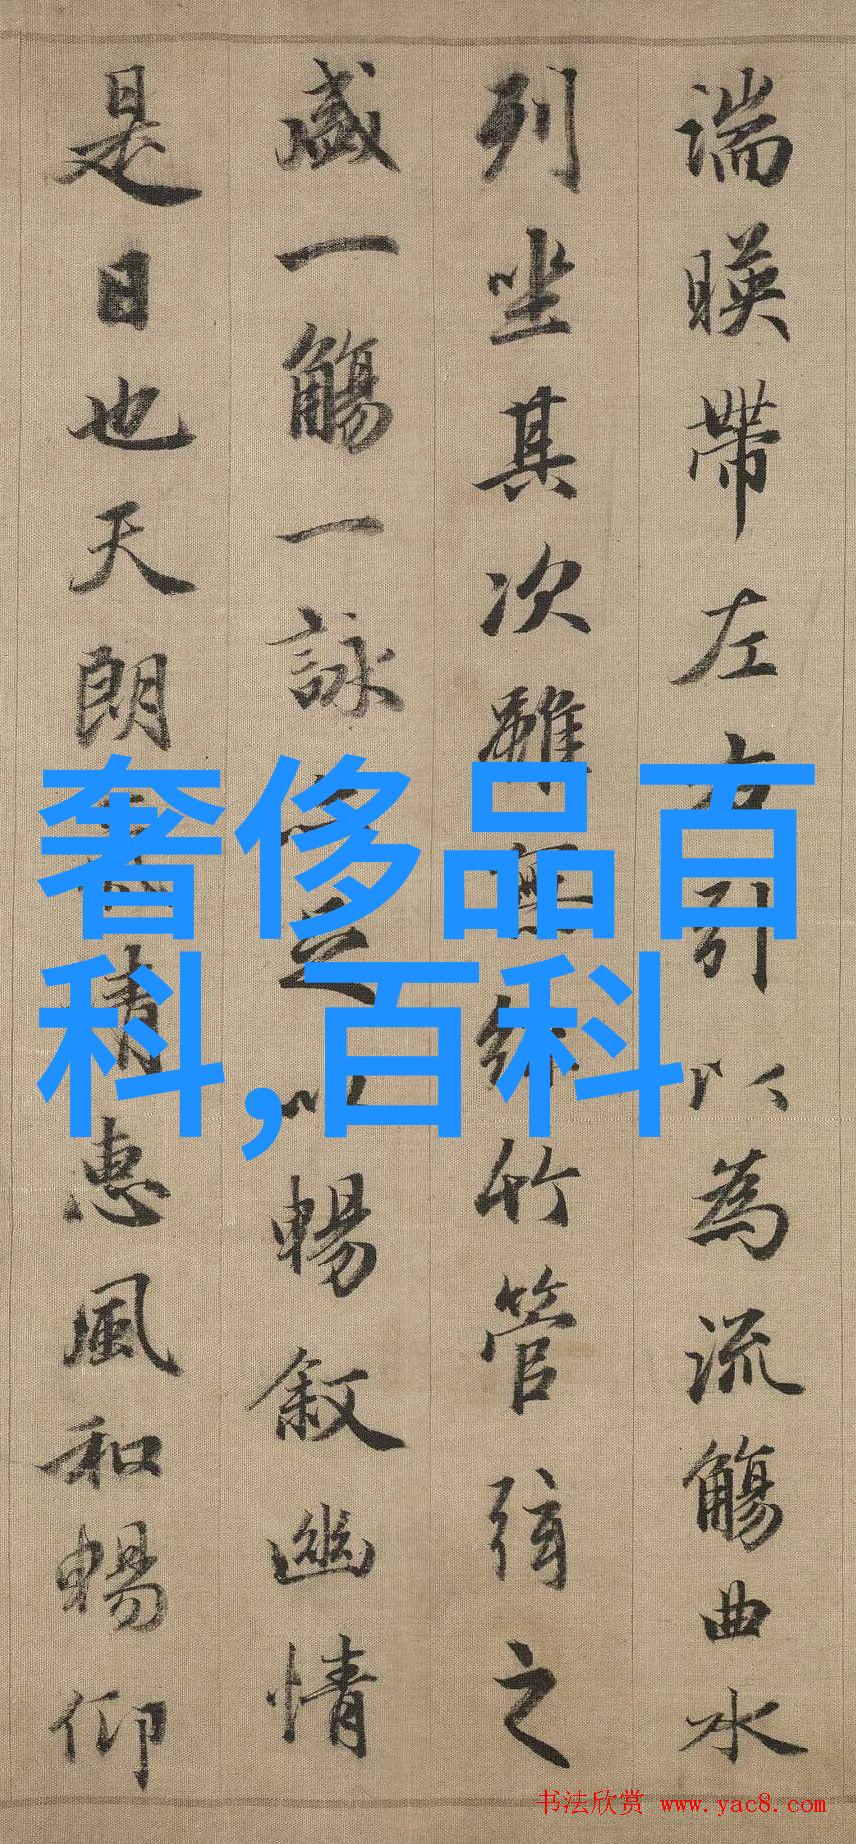 湍暎帶左右引以為流觴曲水
列坐其次雖無絲竹管弦之
盛一觴一詠亦足以暢敘幽情
是日也天朗氣清惠風和暢仰
奢侈品百
科,百科
书法欣赏 www.yac8.com